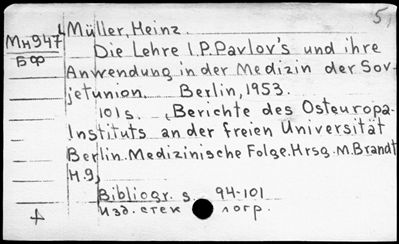 5,
Müller, Heinz.
Мн947
Die Lehre I.P. Pavlov's und ihre
БФ
Anwendung in der Medizin der Sov-
jetunion. Berlin, 1953.
101s. (Berichte des Osteuropa-
Instituts an der freien Universität
Berlin. Medizinische Folge. Hrsg. M. Brandt
H.9)
Bibliogr. s. 94-101
Изд. стеклогр.